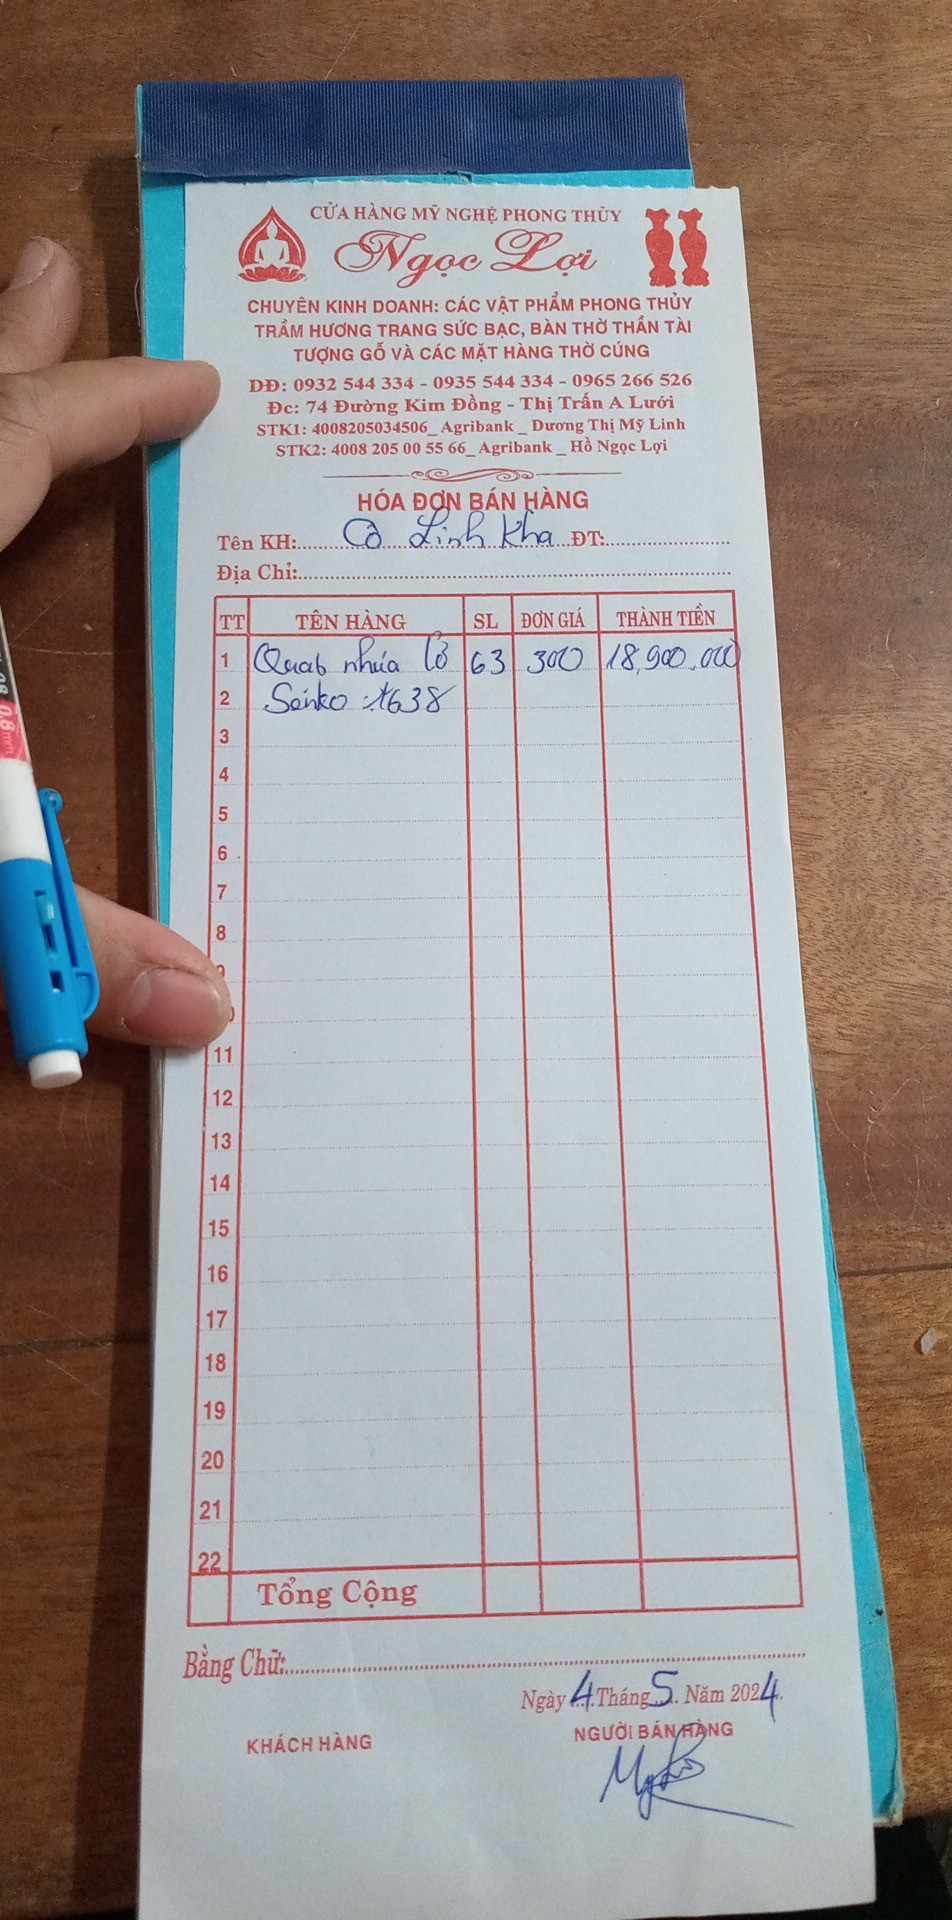 CỬA HÀNG MỸ NGHỆ PHONG THỦY
Ngọc Lợi
CHUYÊN KINH DOANH: CÁC VẬT PHẨM PHONG THỦY
TRẦM HƯƠNG TRANG SỨC BẠC, BÀN THỜ THẦN TÀI
TƯỢNG GỖ VÀ CÁC MẶT HÀNG THỜ CÚNG
DĐ: 0932 544 334 - 0935 544 334 - 0965 266 526
Đc: 74 Đường Kim Đồng - Thị Trấn A Lưới
STK1: 4008205034506_ Agribank _ Dương Thị Mỹ Linh
STK2: 4008 205 00 55 66_ Agribank _ Hồ Ngọc Lợi
HÓA ĐƠN BÁN HÀNG
Tên KH: Cô Linh Kha ĐT:
Địa Chỉ:
TT TÊN HÀNG SL ĐƠN GIÁ THÀNH TIỀN
1 Quạt nhựa 63 300 18,900.000
2 Senko 1638
3
4
5
6
7
8
11
12
13
14
15
16
17
18
19
20
21
22
Tổng Cộng
Bằng Chữ:
Ngày 4 Tháng 5 Năm 2024
KHÁCH HÀNG NGƯỜI BÁN HÀNG
0.8mm